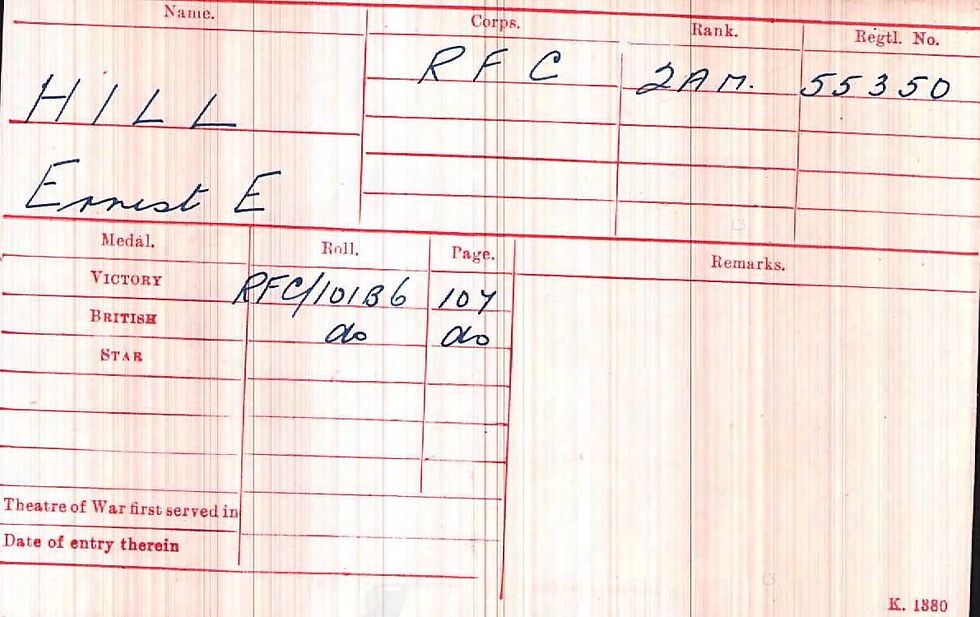 Name. Corps. Rank. Regtl. No.
HILL R F C 2AM. 55350
Ernest E
Medal. Roll. Page. Remarks.
VICTORY RFC/101B6 107
BRITISH do do
STAR
Theatre of War first served in
Date of entry therein
K. 1380